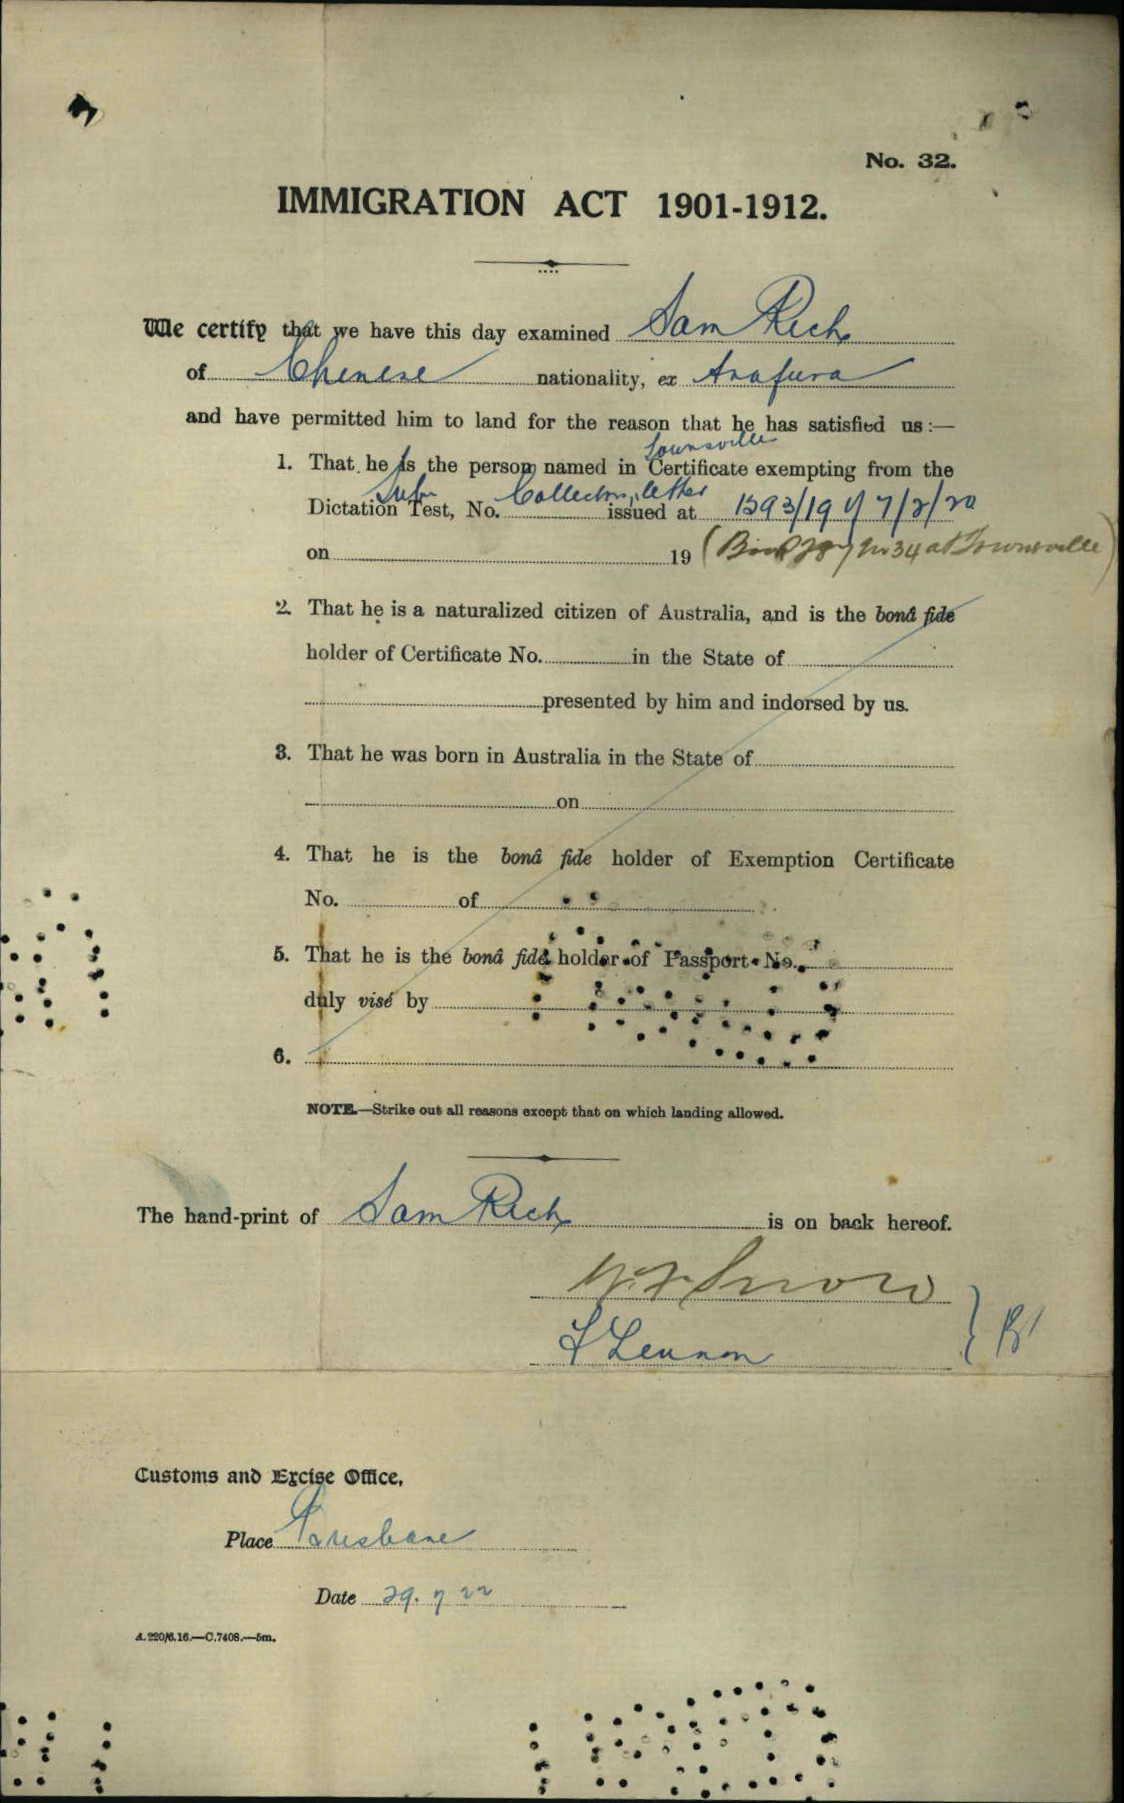 No. 32.
IMMIGRATION ACT 1901-1912.
We certify that we have this day examined Sam Kick
of Chinese nationality, ex Arafura
and have permitted him to land for the reason that he has satisfied us :—
Townsville
1. That he is the person named in Certificate exempting from the
Sub Collectors letter
Dictation Test, No. issued at 1393/19 of 7/2/20
on 19 ( No 34 at Townsville )
2. That he is a naturalized citizen of Australia, and is the bonâ fide
holder of Certificate No. in the State of
presented by him and indorsed by us.
3. That he was born in Australia in the State of
on
4. That he is the bonâ fide holder of Exemption Certificate
No. of
5. That he is the bonâ fide holder of Passport No.
duly visé by
6.
NOTE.—Strike out all reasons except that on which landing allowed.
The hand-print of Sam Kick is on back hereof.
Snow
Lennon
Customs and Excise Office,
Place Brisbane
Date 29. 7 22
A.220/6.16.—C.7408.—5m.